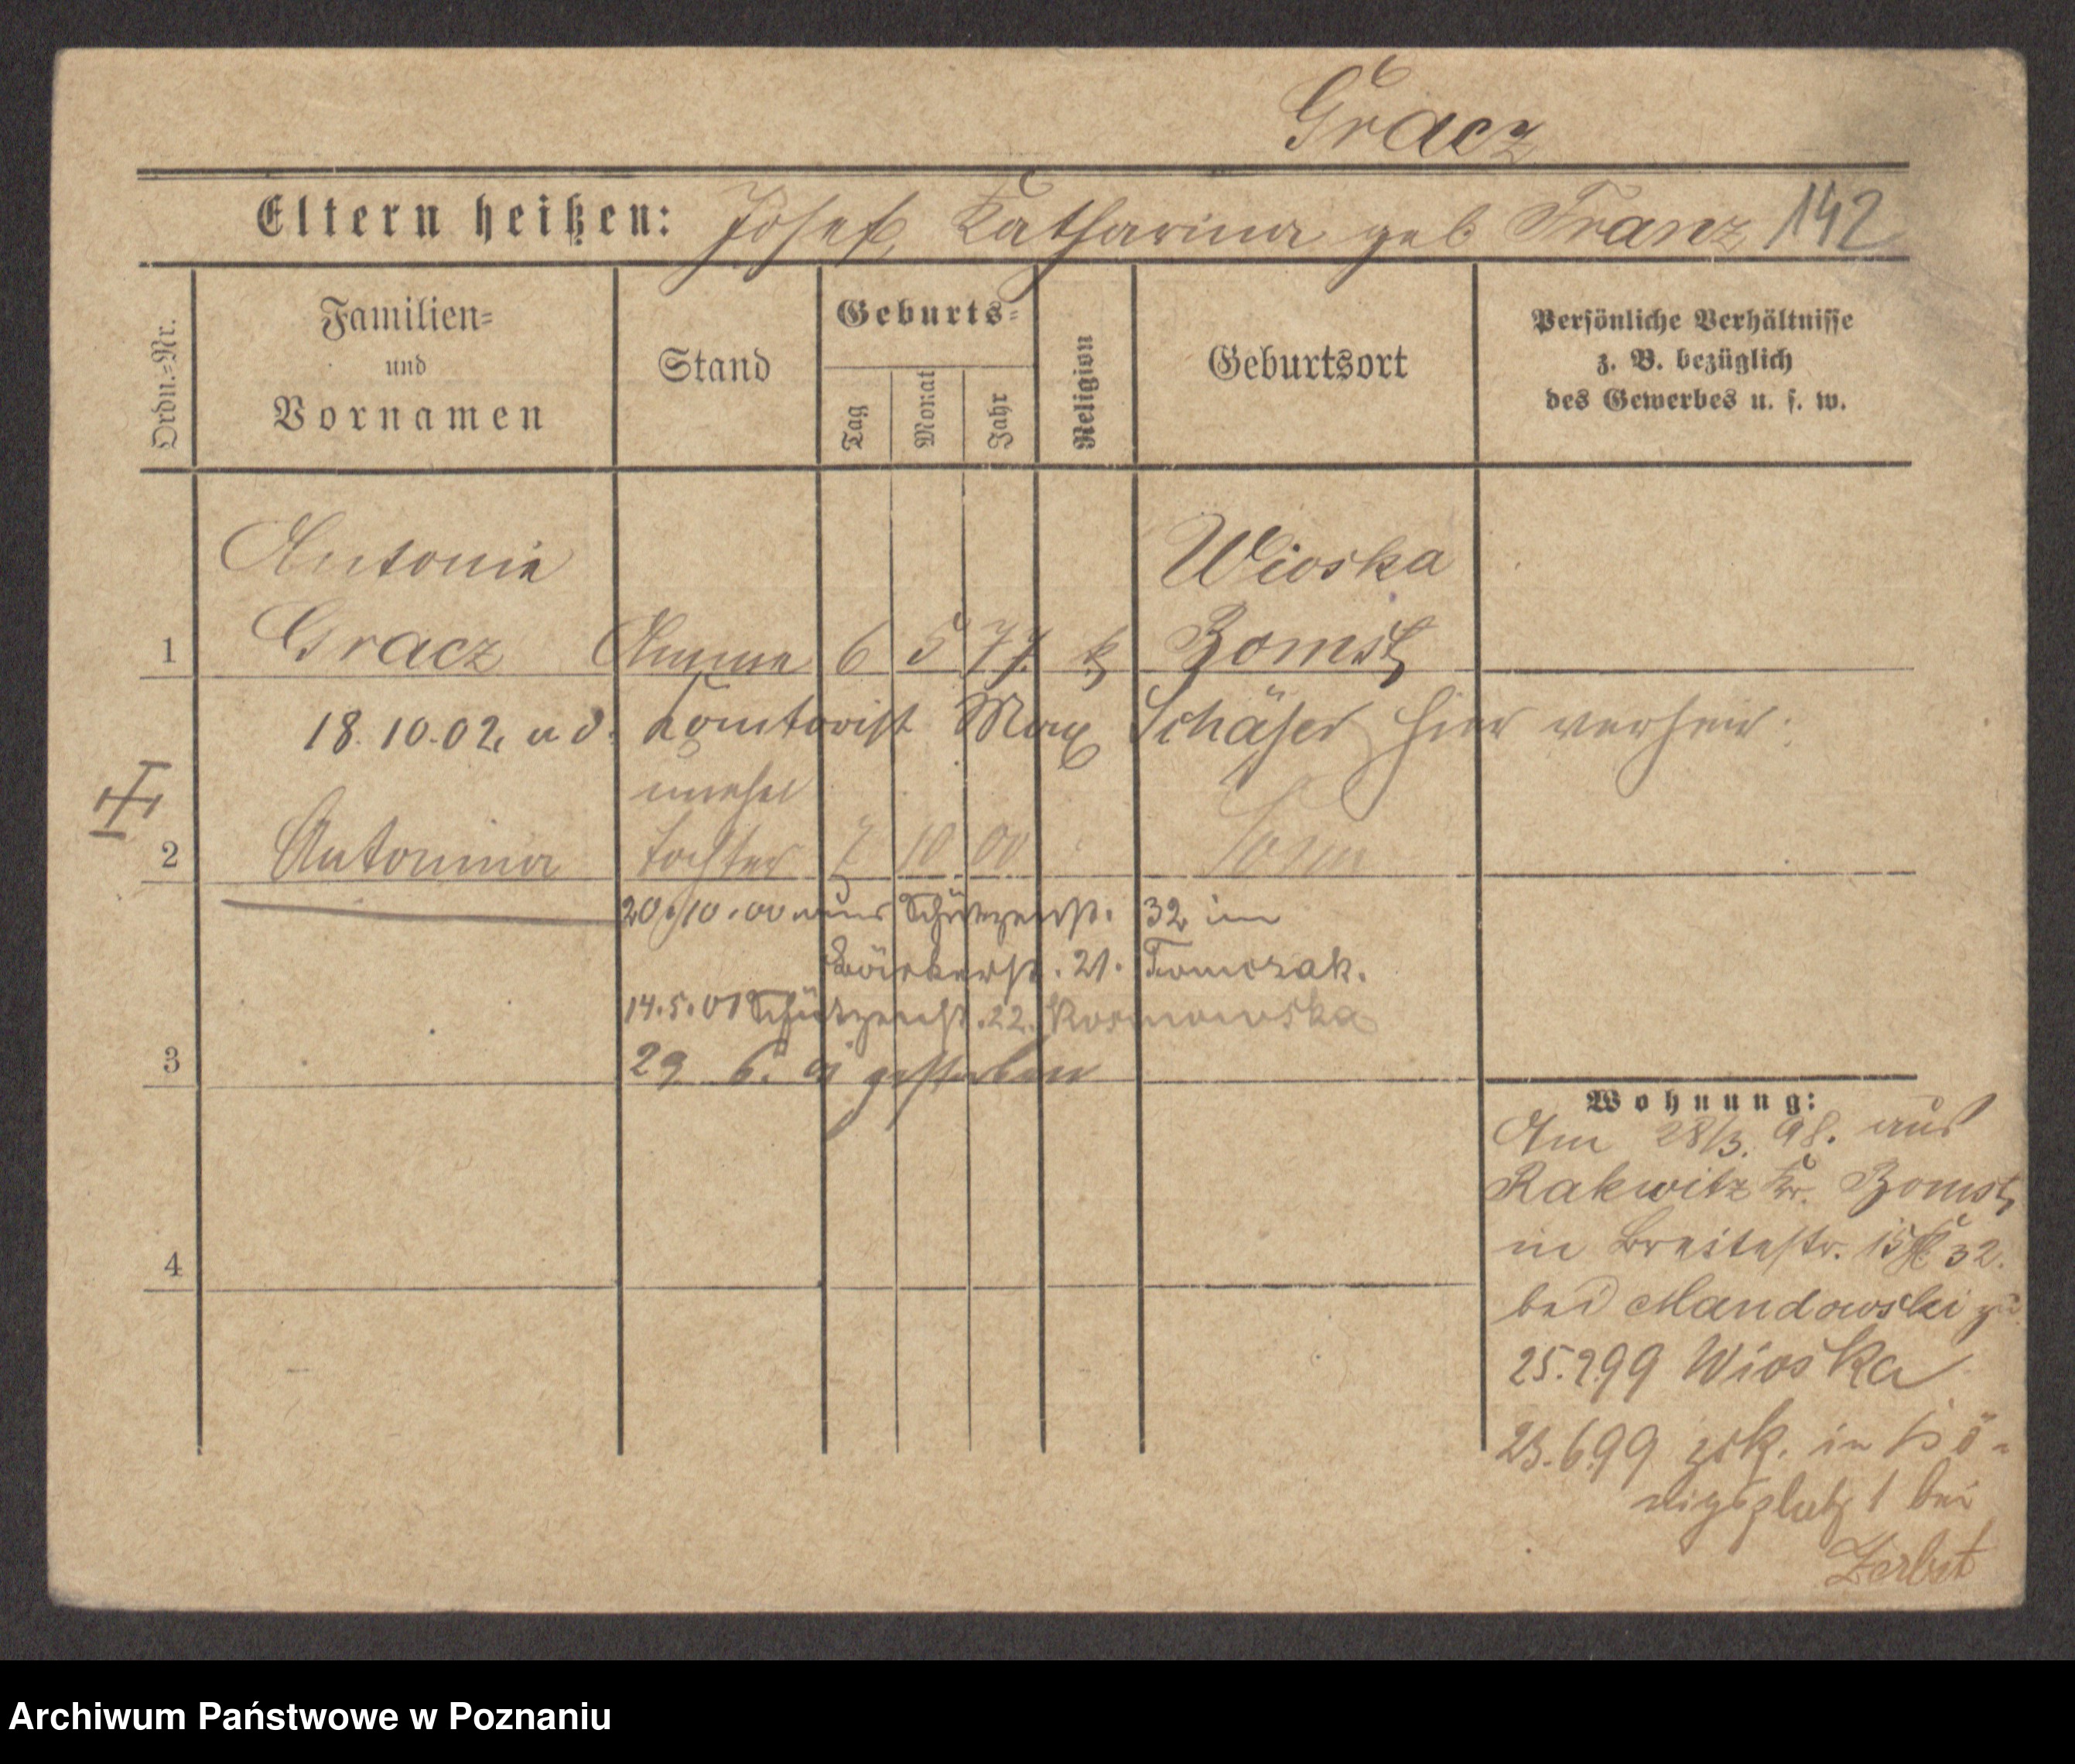 Gracz
Eltern heißen: Josef, Katharina geb Franz 142
Ordn.-Nr.
Familien-
und
Vornamen
Stand
Geburts-
Tag
Monat
Jahr
Religion
Geburtsort
Persönliche Verhältnisse
z. B. bezüglich
des Gewerbes u. s. w.
Antonie Wioska
1 Gracz Amme 6 5 77. k Bomst
18.10.02, Komtorist Max Schäfer hier verheir.
unehel
2 Antonina Tochter 7 10 00
20.10.00 aus Schützenstr. 32 in
Bäckerstr. 21. Tomczak.
14.5.01 Schützenstr. 22.
3 29 6. 01 gestorben
4
Wohnung:
Am 28/3. 98. aus
Rakwitz Kr. Bomst
in Breitestr. 15 32.
bei Mandowski
25.2.99 Wioska
23.6.99 zrk. in Kö-
nigsplatz 1 bei
Zerbst
Archiwum Państwowe w Poznaniu